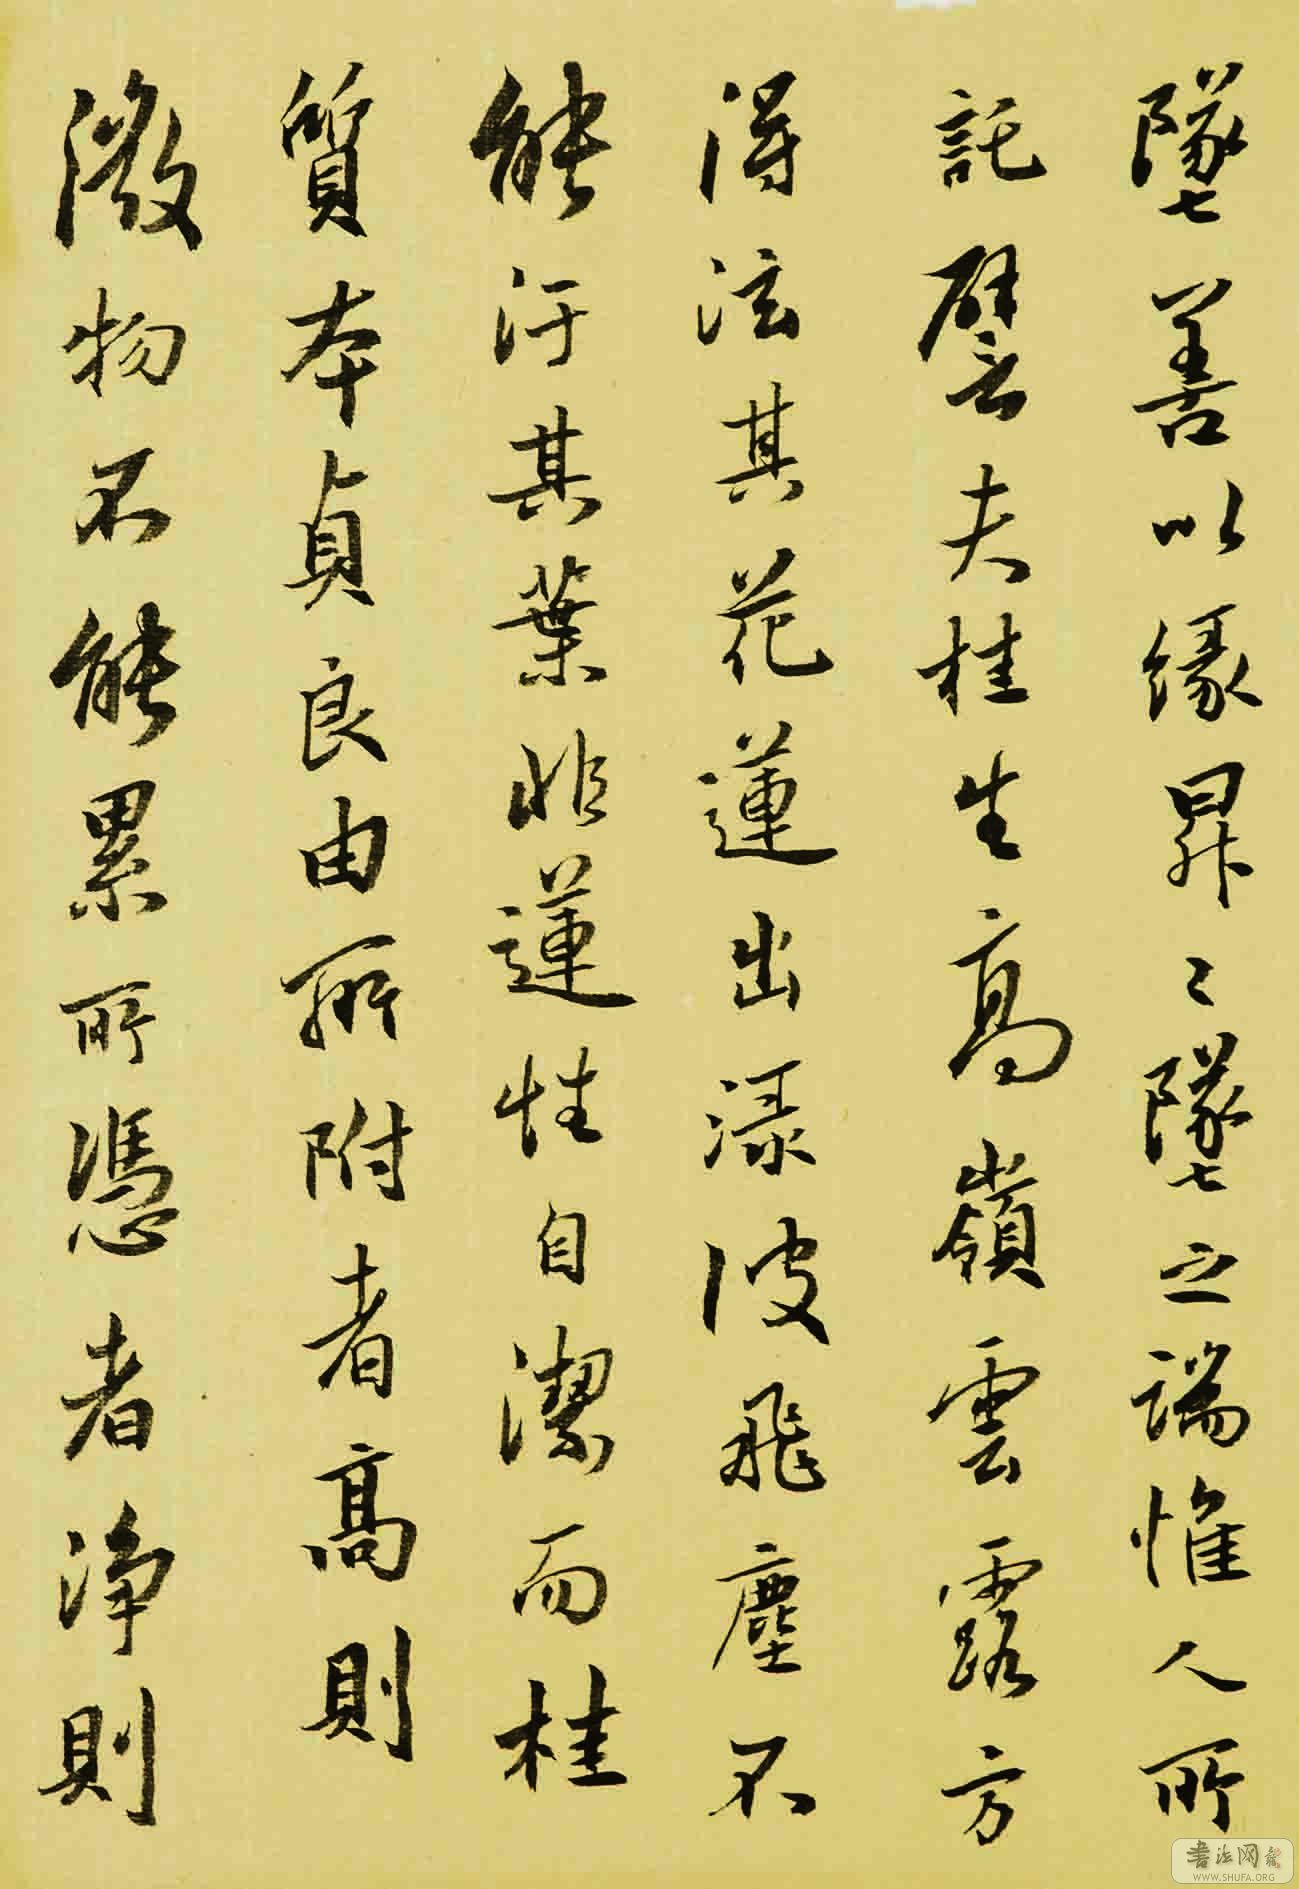 墜善以緣昇〻墜之端惟人所
託譬夫桂生高嶺雲露方
得泫其花蓮出渌波飛塵不
能汙其葉非蓮性自潔而桂
質本貞良由所附者高則
微物不能累所憑者淨則
書法网
WWW.SHUFA.ORG